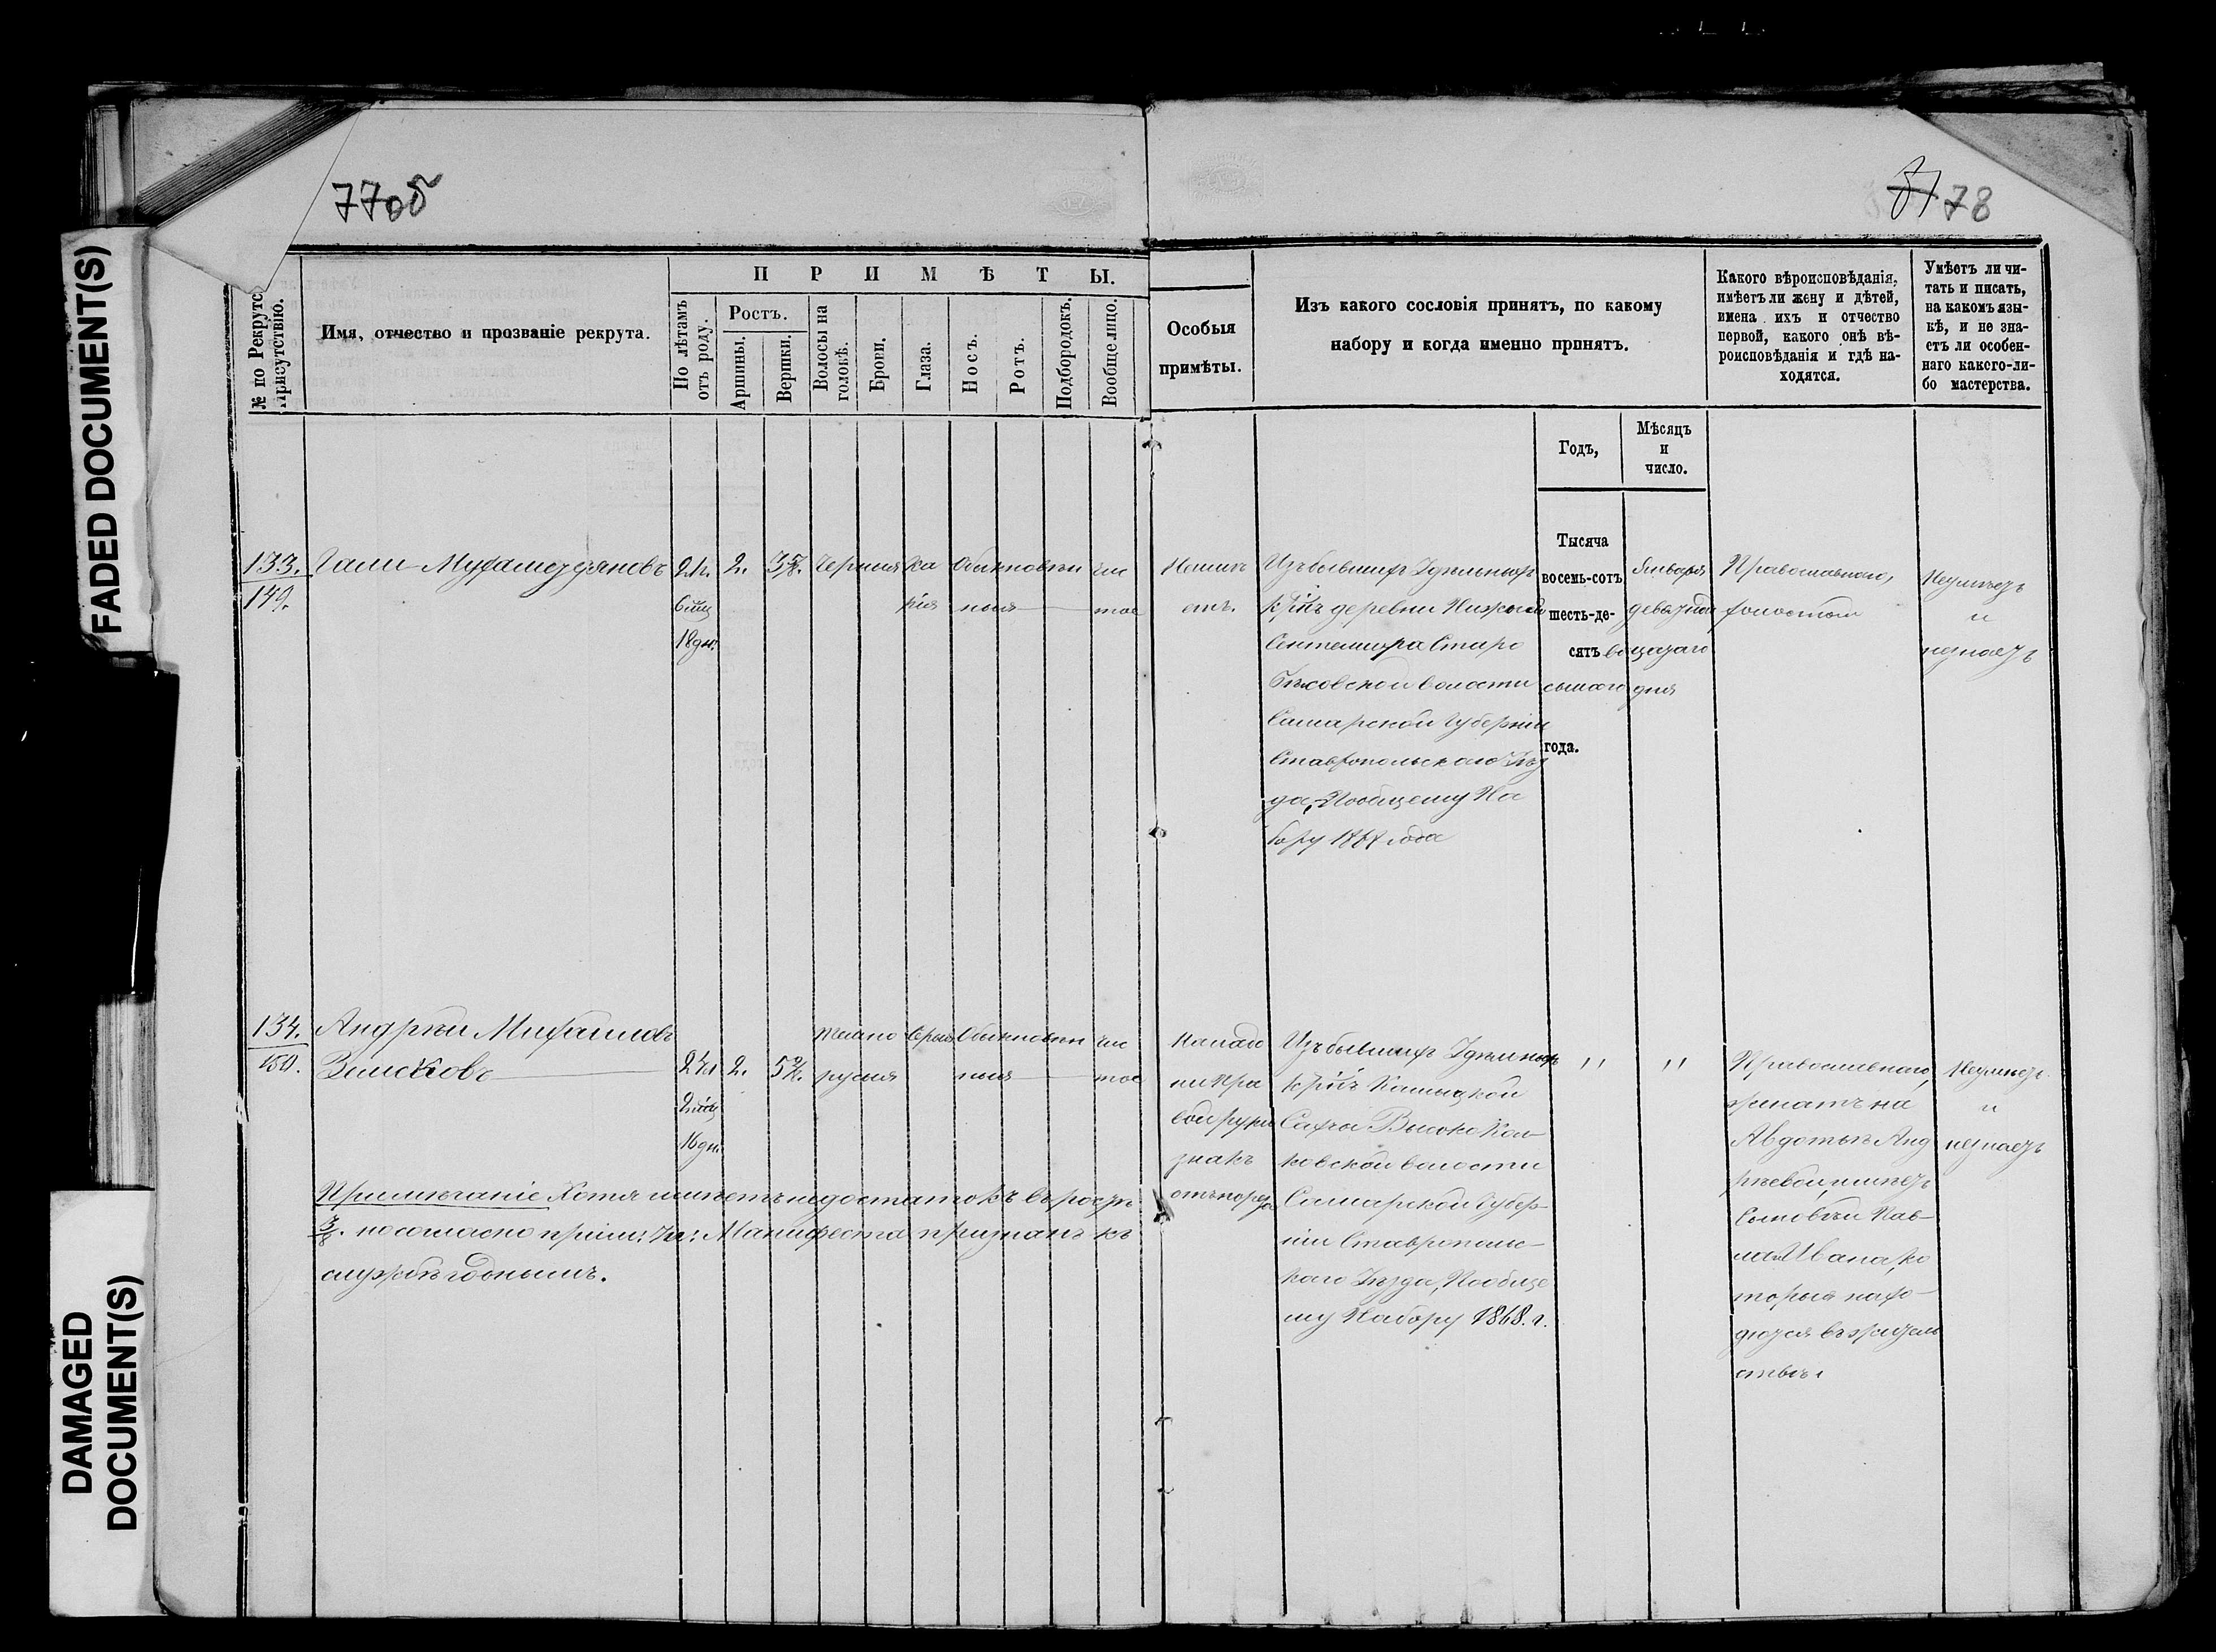 77об
51 78
FADED DOCUMENT(S)
DAMAGED DOCUMENT(S)
№ по Рекрутс.
Присутствію.
Имя, отчество и прозваніе рекрута.
ПРИМѢТЫ.
По лѣтамъ отъ роду.
Ростъ.
Аршины.
Вершки.
Волосы на головѣ.
Брови.
Глаза.
Носъ.
Ротъ.
Подбородокъ.
Вообще лицо.
Особыя
примѣты.
Изъ какого сословія принятъ, по какому
набору и когда именно принятъ.
Какого вѣроисповѣданія,
имѣетъ ли жену и дѣтей,
имена ихъ и отчество
первой, какого онѣ вѣ-
роисповѣданія и гдѣ на-
ходятся.
Умѣетъ ли чи-
тать и писать,
на какомъ язы-
кѣ, и не зна-
етъ ли особен-
наго какого-ли-
бо мастерства.
Годъ,
Мѣсяцъ
и
число.
133.
149.
Гали
21л.
6 мц
18 дн.
2.
3 5/8.
Черныя
ка
рія
Обыкновен
ныя
чис
тое
Неимѣ
етъ.
Изъ бывшихъ Удѣльныхъ
кр҃нъ деревни Нижней
Сентемира Старо
волости
Самарской Губерніи
Ставропольскаго Уѣз
да, По общему На
бору 1868 года
Тысяча
восемь-сотъ
шесть-де-
сятъ во
сьмаго
года.
Января
девятнад
цатаго
дня
Православнаго,
холостой
Неумѣетъ
и
незнаетъ
134.
150.
Андрѣй Михайловъ
24л
2 мц
16 дн.
2.
5 2/8.
темно
русыя
сѣрыя
Обыкновен
ныя
чис
тое
На ладо
ни пра
вой руки
знакъ
отъ порѣза
Изъ бывшихъ Удѣльныхъ
кр҃нъ
волости
Самарской Губер-
ніи Ставрополь-
скаго Уѣзда, По обще
му Набору 1868. г.
"
"
Православнаго,
женатъ на
Авдотьѣ Анд
рѣевой, имѣетъ
Сыновей Пав-
ла и Ивана, ко
торыя нахо-
дются въ жител
ствѣ
Неумѣетъ
и
незнаетъ
Примѣчаніе Хотя имѣетъ недостатокъ въ ростѣ
но согласно прим: Манифеста признанъ къ
службѣ годнымъ.